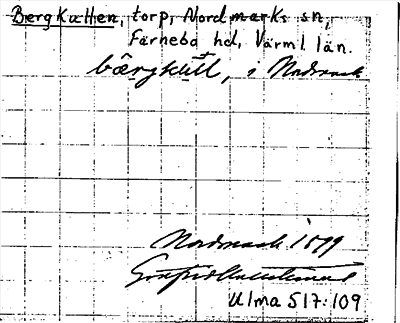 Bergkutten, torp, Nordmarks sn,
Färnebo hd, Värml. län.
i Nordmark
Nordmark 1899
Ulma 517:109